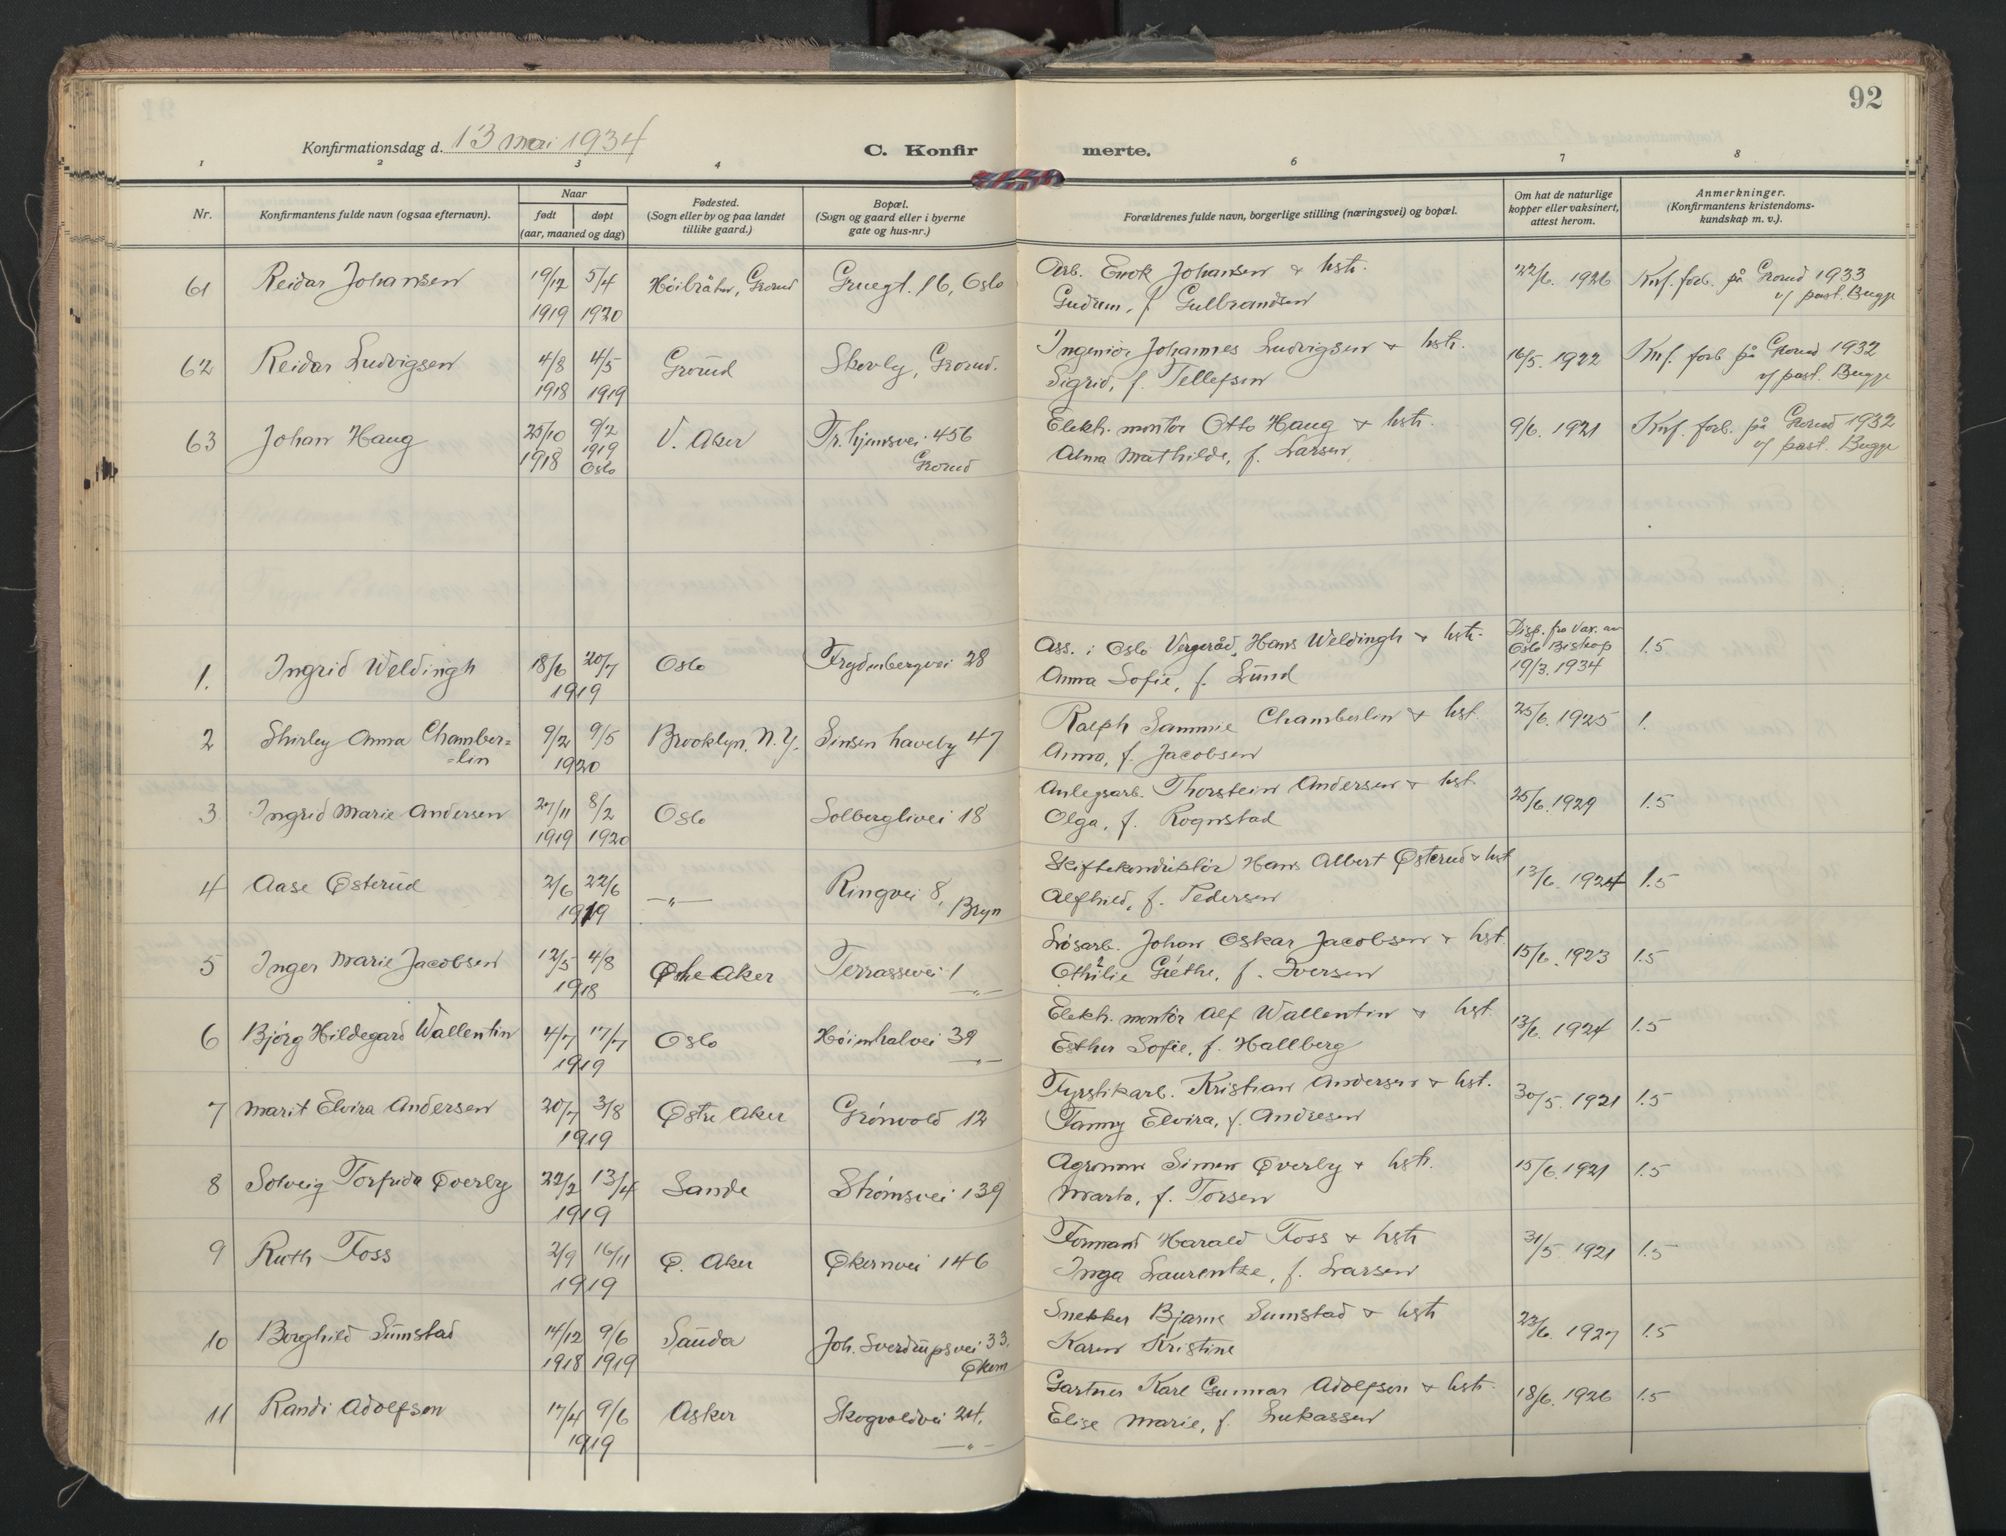 92
Konfirmationsdag d. 13 mai 1934
C. Konfirmerte.
1 2 3 4 6 7 8
Nr.
Konfirmantens fulde navn (ogsaa efternavn).
Naar
født døpt
(aar, maaned og dag)
Fødested.
(Sogn eller by og paa landet
tillike gaard.)
Bopæl.
(Sogn og gaard eller i byerne
gate og hus-nr.)
Forældrenes fulde navn, borgerlige stilling (næringsvei) og bopæl.
Om hat de naturlige
kopper eller vaksinert,
attest herom.
Anmerkninger.
(Konfirmantens kristendoms-
kundskap m. v.).
61 Reidar Johansen 19/12 1919 5/4 1920 Høibråten, Grorud Gruegt. 16, Oslo Arb. Enok Johansen & hstr.
Gudrun, f. Gulbrandsen 22/6. 1926 Knf. forb. på Grorud 1933
v/ past. Bugge
62 Reidar Ludvigsen 4/8 1918 4/5 1919 Grorud Skovly, Grorud. Ingeniør Johannes Ludvigsen & hstr.
Sigrid, f. Tellefsen 16/5. 1922 Knf. forb på Grorud 1932
v/ past. Bugge
63 Johan Haug 25/10 1918 9/2 1919 Oslo V. Aker Tr.hjemsvei 456
Grorud Elektr. montør Otto Haug & hstr.
Alma Mathilde, f. Larsen 9/6. 1921 Knf. forb. på Grorud 1932
v/ past. Bugge
1. Ingrid Weldingh 18/6 20/7 1919 Oslo Frydenbergvei 28 Ass. i Oslo Vergeråd, Hans Weldingh & hstr.
Anna Sofie, f. Lund Disp. fra Vax. av
Oslo Biskop
19/3. 1934 1.5
2 Shirley Anna Chamber=
=lin 9/2 9/5 1920 Brooklyn, N.Y. Sinsen haveby 47 Ralph Sammie Chamberlin & hst.
Anna, f. Jacobsen 25/6. 1925 1.
3 Ingrid Marie Andersen 27/11 1919 8/2 1920 Oslo Solberglivei 18 Anlegsarb. Thorstein Andersen & hst.
Olga, f. Rognstad 25/6. 1929 1.5
4 Aase Østerud 2/6 22/6 1919 —"— Ringvei 8,
Bryn Skiftekonduktør Hans Albert Østerud & hst
Alfhild, f. Pedersen 13/6. 1924 1.5
5 Inger Marie Jacobsen 12/5 4/8 1918 Østre Aker Terrassevei 1
—"— Løsarb. Johan Oskar Jacobsen & hst.
Othilie Grethe, f. Iversen 15/6. 1923 1.5
6 Bjørg Hildegard Wallentin 4/7 17/7 1919 Oslo Høienhalvei 39
—"— Elektr. montør Alf Wallentin & hst.
Esther Sofie, f. Hallberg 13/6. 1924 1.5
7 Marit Elvira Andersen 20/7 3/8 1919 Østre Aker Grønvold 12 Fyrstikarb. Kristian Andersen & hst.
Fanny Elvira, f. Andresen 30/5. 1921 1.5
8 Solveig Torfrida Øverby 22/2 13/4 1919 Sande Strømsvei 139 Agronom Simen Øverby & hstr.
Marta, f. Torsen 15/6. 1921 1.5
9 Ruth Foss 2/9 16/11 1919 Ø. Aker Økernvei 146 Formand Harald Foss & hstr
Inga Laurentze, f. Larsen 31/5. 1921 1.5
10 Borghild Sumstad 14/12 1918 9/6 1919 Sauda Joh. Sverdrupsvei 33,
Økern Snekker Bjarne Sumstad & hstr
Karen Kristine 23/6. 1927 1.5
11 Randi Adolfsen 17/4 9/6 1919 Asker Skogvoldvei 24,
—"— Gartner Karl Gunnar Adolfsen & hstr.
Elise Marie, f. Lukassen 18/6. 1926 1.5